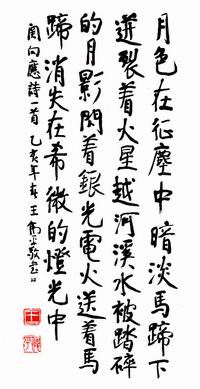 月色在征塵中暗淡馬蹄下
迸裂着火星越河溪水被踏碎
的月影閃着銀光電火送着馬
蹄消失在希微的燈光中
関向應詩一首乙亥年春王